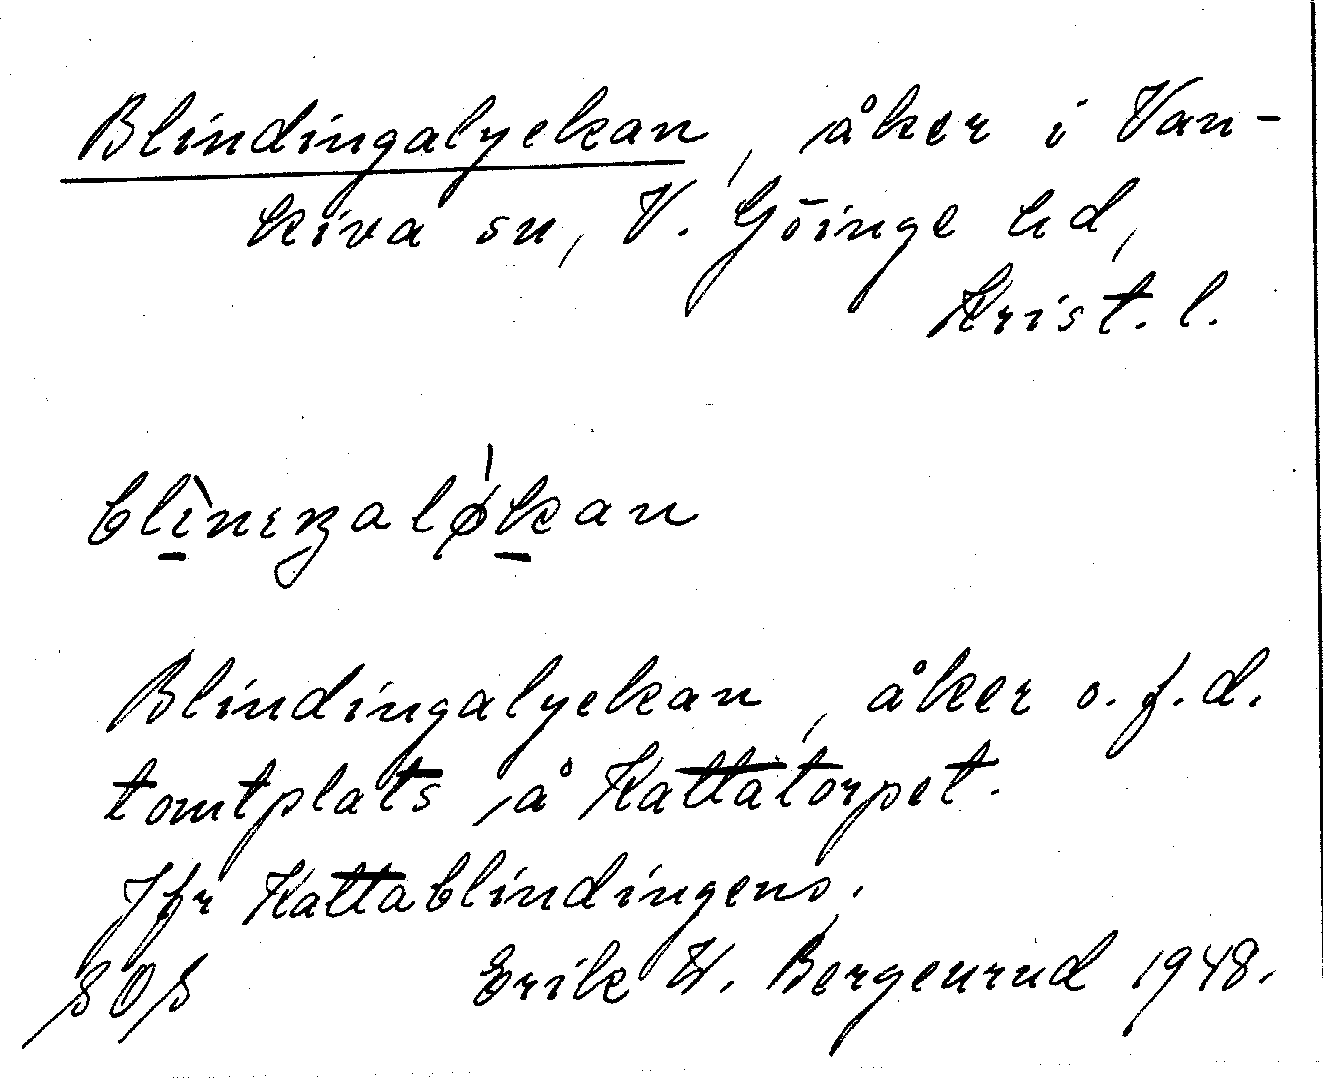 Blindingalyckan, åker i Van-
kiva sn, V. Göinge hd,
Krist. l.
blìnıŋalø̍kan
Blindingalyckan, åker o. f.d.
tomtplats å Kattatorpet.
Jfr Kattablindingens.
SOS Erik W. Bergenrud 1948.